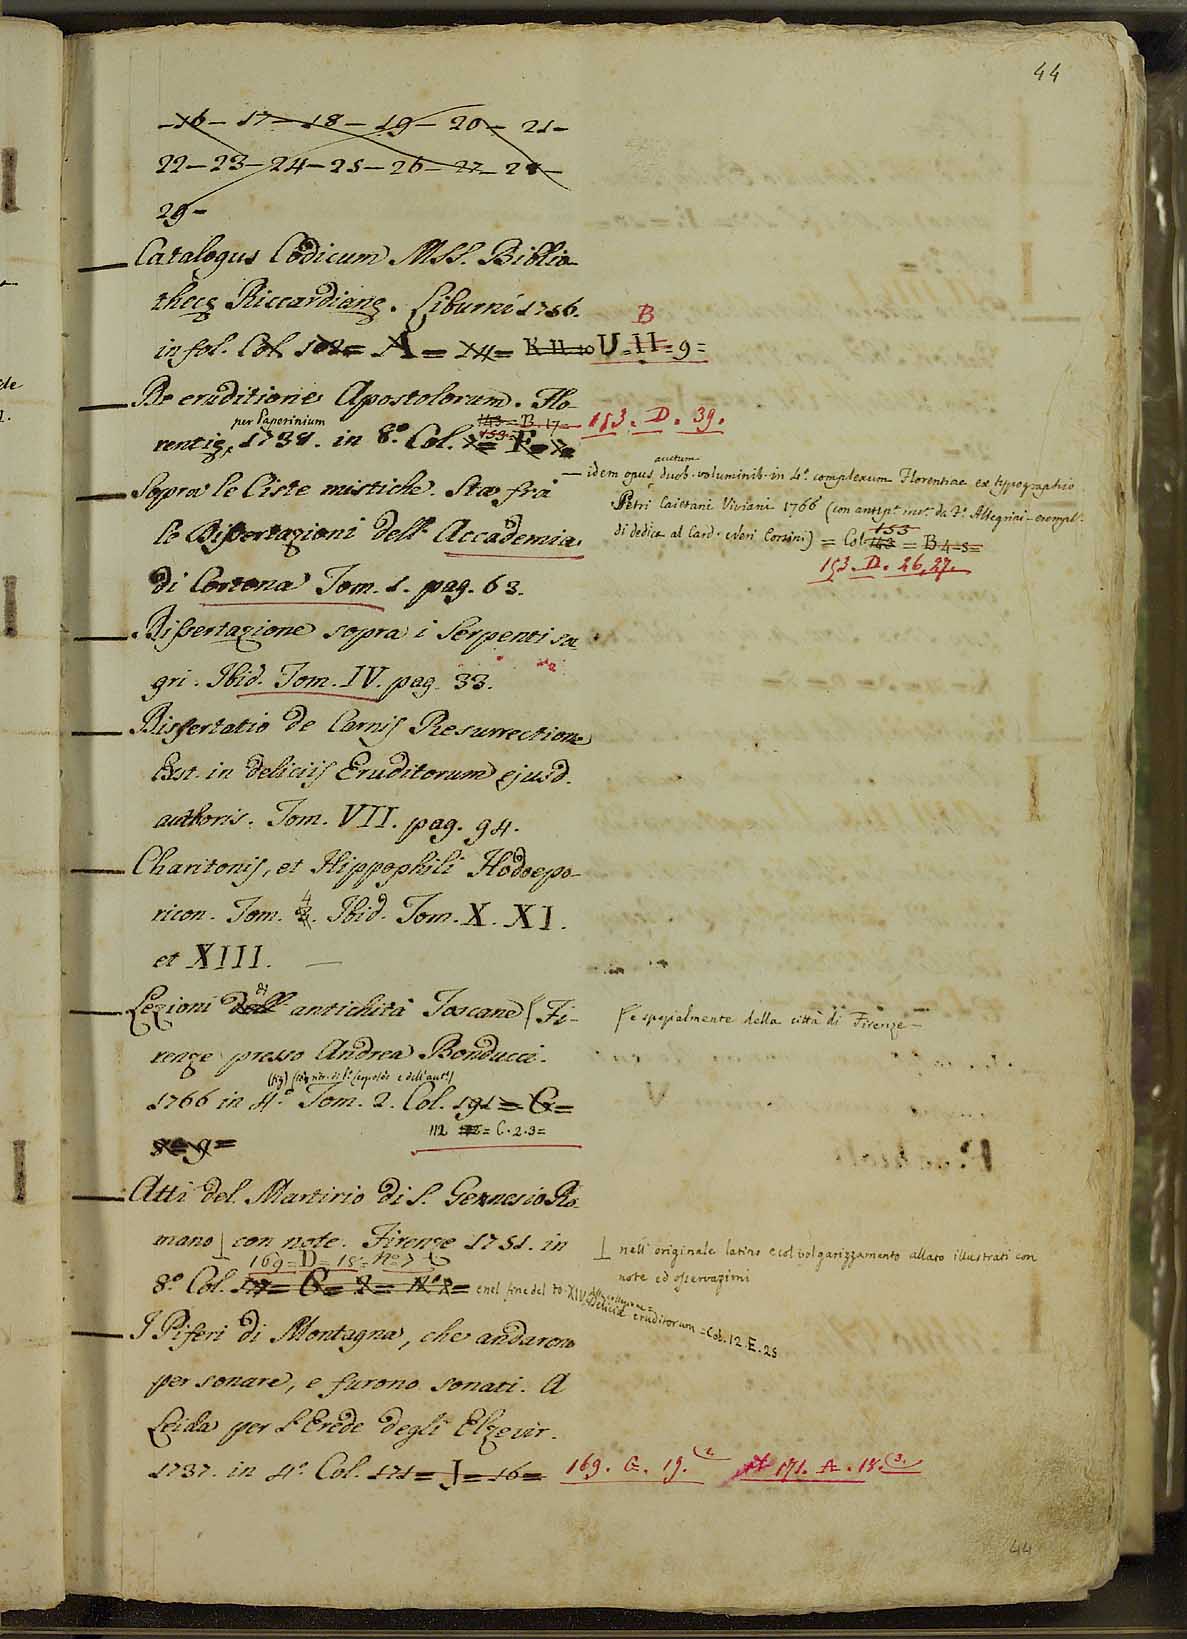 44
-16- 17- 18- 19- 20- 21-
22- 23- 24- 25- 26- 27- 28-
29-
Catalogus Codicum MSS. Biblio-
thecę Riccardianę. Liburni 1756.
B
in fol. Col. = A = 14 = K. II. 10 U = II = 9 =
De eruditione Apostolorum. Flo-
per Paperinium 143 = B. 17 = 153. D. 39.
rentię, 1738. in 8.º Col. = F =
idem opus auctum duob. voluminib. in 4.º complexum Florentiae ex typographio
Sopra le Ciste mistiche. Sta frà
Petri Caietani Viviani 1766 (con antip.
le Dissertazioni dell' Accademia
di dedica al Card. Neri Corsini) = Col. 143 153 = B 4=5=
153. D. 26, 27.
di Cortona Tom. 1. pag. 63.
Dissertazione sopra i Serpenti sa-
gri. Ibid. Tom. IV. pag. 33.
Dissertatio de Carnis Resurrectione
Exst. in deliciis Eruditorum ejusd.
authoris. Tom. VII. pag. 94.
Charitonis, et Hippophili Hodoepo-
ricon. Tom. 4. Ibid. Tom. X. XI.
et XIII. —
Lezioni di antichità Toscane ( Fi-
( e spezialmente della città di Firenze —
renze presso Andrea Bonducci.
1766 in 4.º Tom. 2. Col. 191 = G =
8 = 9 =
112 = C. 2. 3 =
Atti del Martirio di S. Gennesio Ro-
mano ⊥ con note. Firenze 1751. in
⊥ nell' originale latino e col volgarizzamento allato illustrati con
note ed osservazioni
169 = D = 15 = Nº 7
8.º Col. 17 = G = 2 = Nº 2 = e nel fine del to. XIV. Deliciae eruditorum = Col. 12. E. 25
I Piferi di Montagna, che andarono
per sonare, e furono sonati. A
Leida per l'Erede degli Elzevir.
1737. in 4.º Col. 171 = J = 16 = 169. G. 19. (2. et 171. A. 18. (3.
44